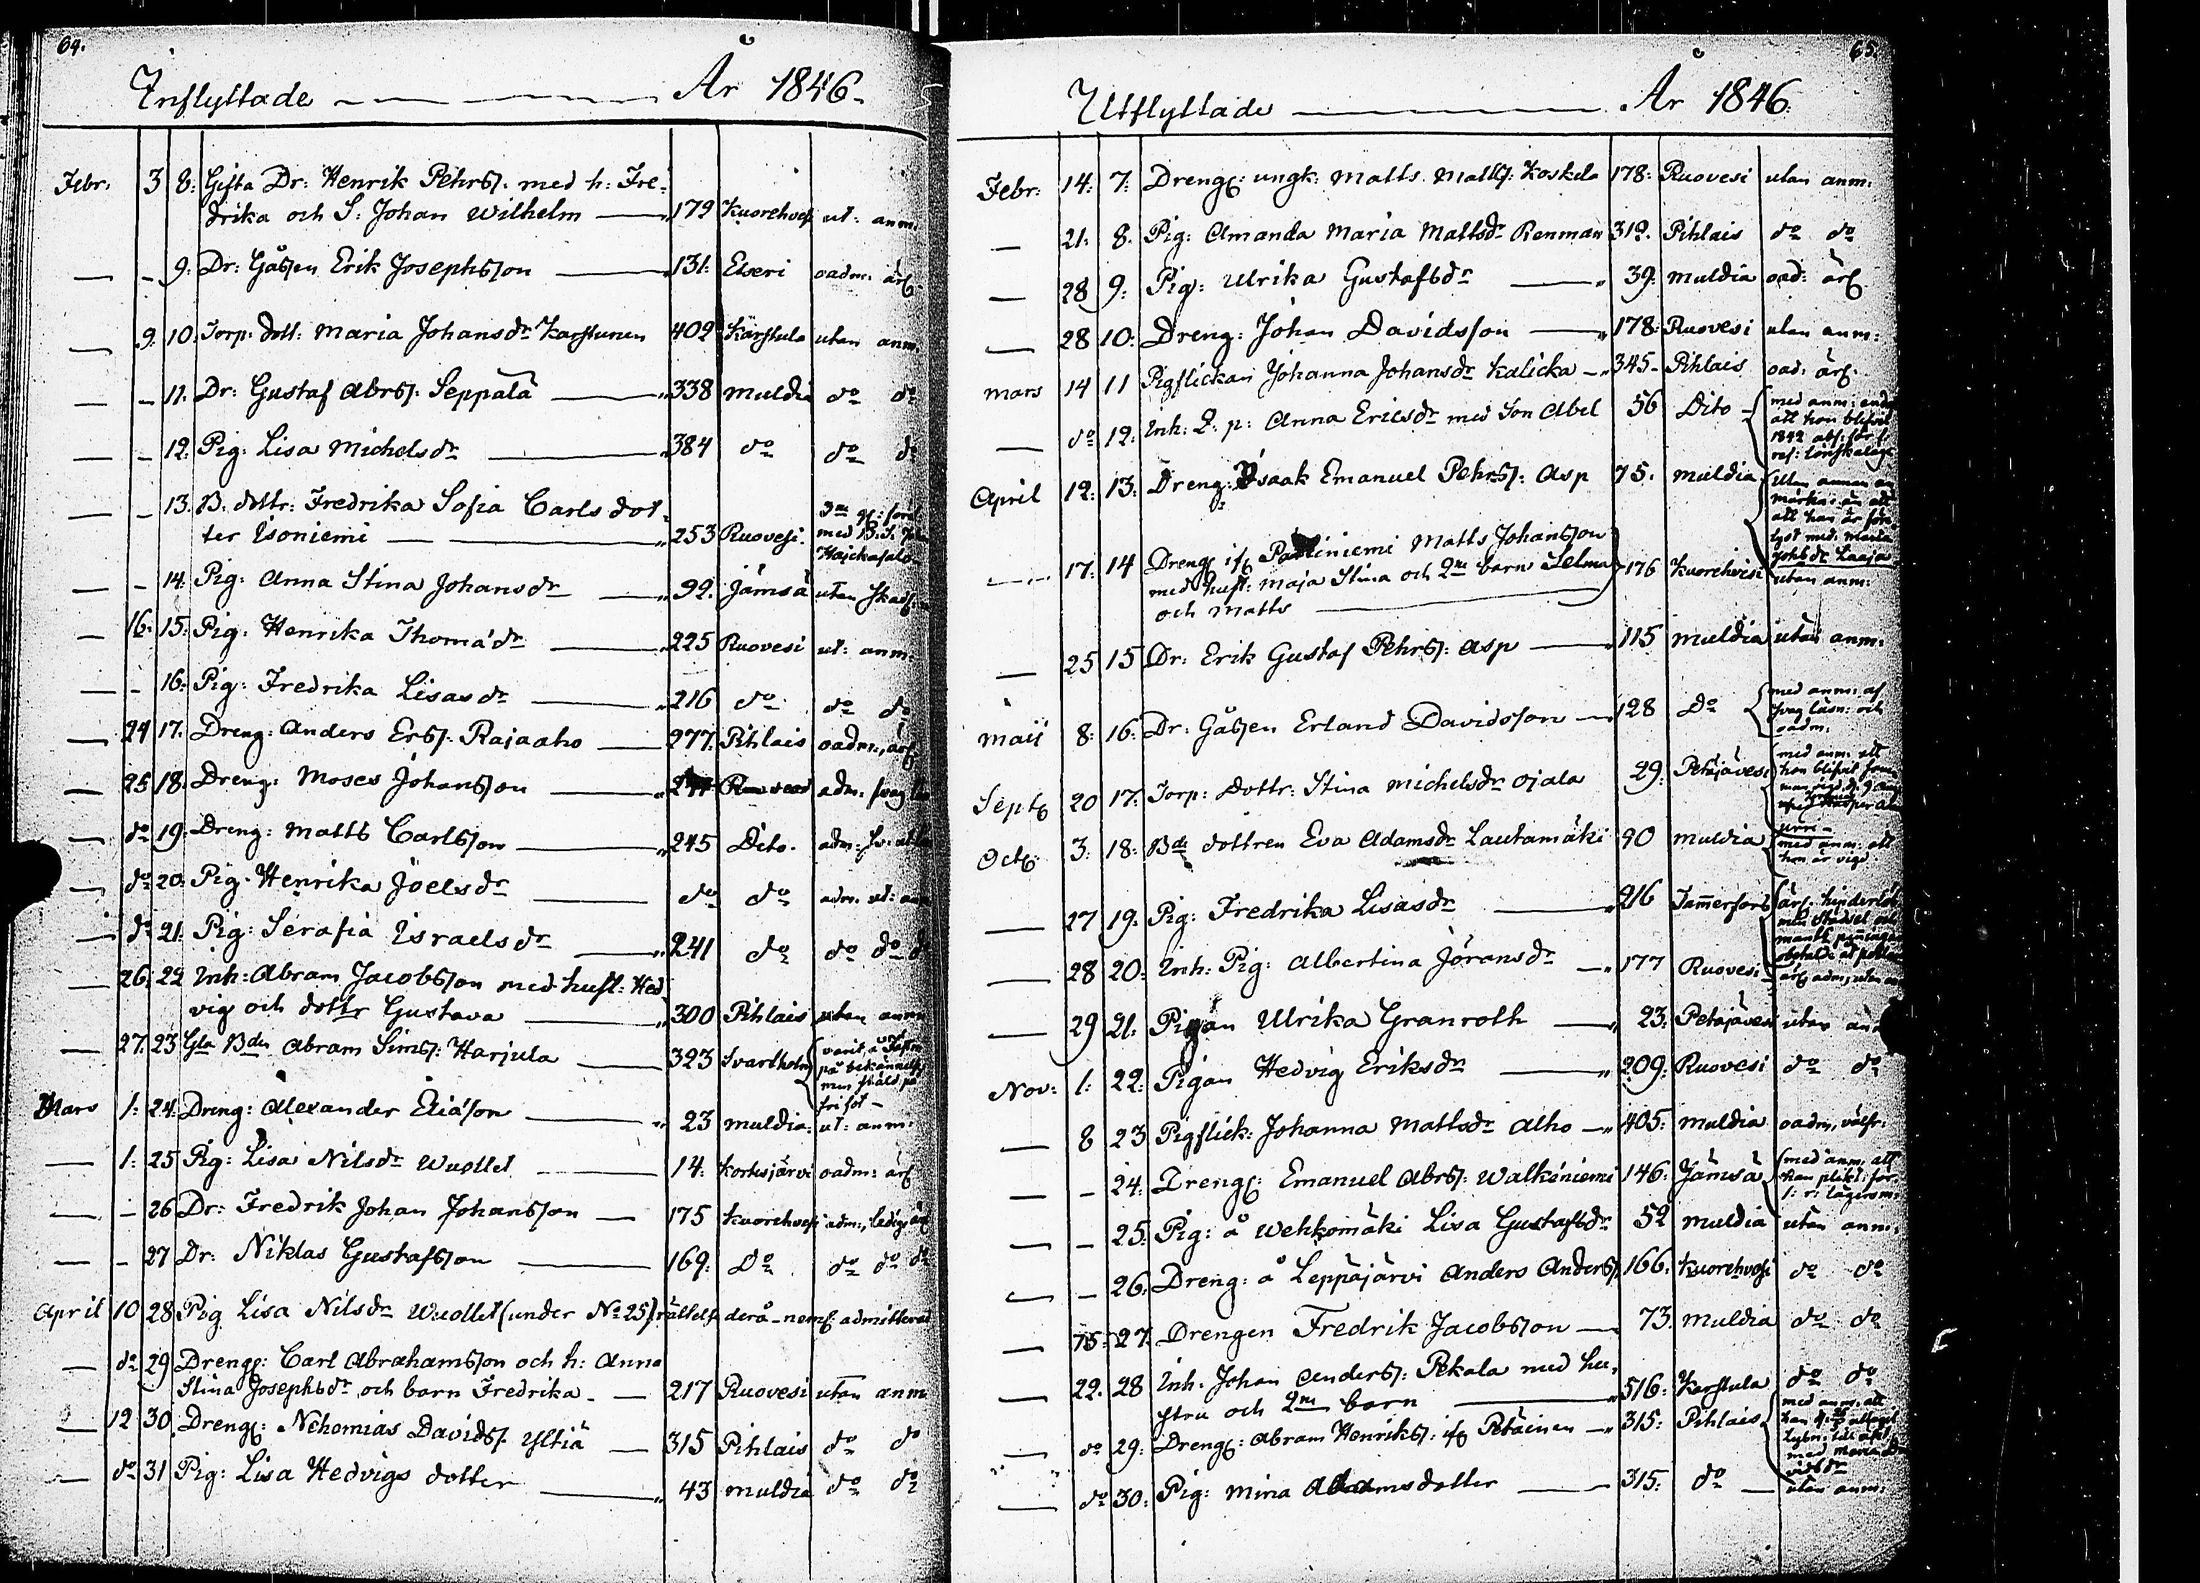 64.
Inflyttade År 1846.
Febr. 3 8: Gifta Dr: Henrik Pehrss. med h: Fre-
drika och S: Johan Wilhelm 179 Kuorehvesi ut: anm:
— – 9: Dr: Gåssen Erik Josephsson 131: Etseri oadm: ärl.
— 9. 10. Torp. dott: Maria Johansdr Karstunen 402 Karstula utan anm.
— – 11. Dr: Gustaf Abrss. Seppälä 338 Muldia do do
— – 12. Pig: Lisa Michelsdr 384 do do do
— – 13. B. dottr: Fredrika Sofia Carlsdot-
ter Isoniemi 253 Ruovesi. med B. S.
— – 14: Pig: Anna Stina Johansdr 92. Jämsä utan
— 16: 15: Pig: Henrika Thomædr 225 Ruovesi ut: anm:
— – 16: Pig: Fredrika Lisasdr 216 do do do
— 24 17. Dreng: Anders Erss. Rajaaho 277. Pihlais oadm:, ärl
— 25 18. Dreng: Moses Johansson adm: svag
— do 19. Dreng: Matts Carlsson 245 Dito. adm:
— do 20: Pig. Henrika Joelsdr do do adm. ut: anm
— do 21. Pig: Serafia Israelsdr 241 do do do do
— 26. 22 Inh: Abram Jacobsson med hust: Hed-
vig och dottr Gustava 300 Pihlais utan anm
— 27. 23 Gla Bdn Abram Simss. Harjula 323 Svartholm varit å
på bekännelse
men
Mars 1: 24. Dreng: Alexander Eliæson 23 Muldia: ut: anm:
— 1: 25 Pig: Lisa Nilsdr Wuollet 14: Kortesjärvi oadm: ärl
— – 26 Dr: Fredrik Johan Johansson 175 Kuorehvesi adm:, ledig
— – 27 Dr: Niklas Gustafsson 169: Do do do do
April 10 28 Pig Lisa Nilsdr Wuollet (under No 25) rättelse derå – neml: admitterad
— do 29 Drenge: Carl Abrahamsson och h: Anna
Stina Josephsdr och barn Fredrika 217 Ruovesi utan anm
12 30. Dreng: Nehemias Davidss. Yltiä 315 Pihlais do do
— do 31 Pig: Lisa Hedvigs dotter 43 Muldia do do
65.
Utflyttade År 1846.
Febr: 14: 7: Dreng: ungk. Matts Mattss: Koskela 178: Ruovesi utan anm:
— 21. 8. Pig: Amanda Maria Mattsdr Renman 312. Pihlais do do
— 28 9: Pig: Ulrika Gustafsdr 39: Muldia oad: ärl.
— 28 10: Dreng: Johan Davidsson 178: Ruovesi utan anm:
Mars 14 11 Pigflickan Johanna Johansdr Kalicka 345 Pihlais oad: ärl.
— do 12: Inh: E. p: Anna Ericsdr med Son Abel 56 Dito med anm: 
att hon blifvit
1842 abs: för 1.
res: lönskaläge
April 12: 13: Dreng: Isaak Emanuel Pehrss: Asp 75. Muldia Utan annan an
märkn: än
att han är före
lyst med: Maria
Johsdr Laaja
— 17: 14 Dreng ifr Pasiniemi Matts Johansson
med hust: Maja Stina och 2ne barn Selma 176 Kuorehvesi utan anm:
och Matts
— 25 15 Dr: Erik Gustaf Pehrss: Asp 115 Muldia utan anm:
Maij 8: 16. Dr: Gåssen Erland Davidsson 128 Do med anm: af
svag läsn: och
oadm:
Septr 20 17: Torp: Dottr: Stina Michelsdr Ojala 29: Petäjävesi med anm: att
hon blifvit
Octr: 3. 18: Bde dottren Eva Adamsdr Lautamäki 90 Muldia med anm: att
hon är vigd
— 27 19. Pig: Fredrika Lisasdr 216 Tammerfors ärl. hinderlös
— 28 20: Inh: Pig: Albertina Jöransdr 177 Ruovesi ärl adm, utan
— 29 21. Pigan Ulrika Granroth 23: Petäjävesi utan
Nov: 1: 22: Pigan Hedvig Eriksdr 209: Ruovesi do do
— 8 23 Pigflick: Johanna Mattsdr Alho 405: Muldia oadm, välfr:
— – 24: Dreng: Emanuel Abrss: Walkeniemi 146: Jämsä med anm: att
han plikt: för
1: r: lägersm:
— – 25. Pig: å Wehkomäki Lisa Gustafsdr 52 Muldia utan anm:
— – 26: Dreng: å Leppäjärvi Anders Anderss. 166. Kuorehvesi do do
— 15: 27. Drengen Fredrik Jacobsson 73. Muldia do do
— 22. 28 Inh: Johan Anderss. Pekala med hu-
stru och 2ne barn 516: Karstula do do
— do 29: Dreng: Abram Henrikss: ifr Petäinen 315: Pihlais med anm: att
med Maria Da
vidsdr
— do 30: Pig: Mina Adamsdotter 315. do utan anm: